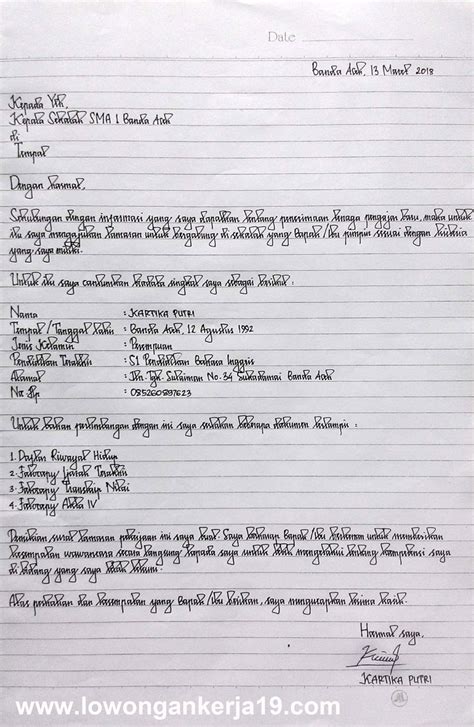 Date
Banda Aceh, 13 Maret 2018
Kepada Yth,
Kepala Sekolah SMA 1 Banda Aceh
di
Tempat
Dengan hormat,
Sehubungan dengan informasi yang saya dapatkan tentang penerimaan tenaga pengajar baru, maka untuk
itu saya mengajukan lamaran untuk bergabung di sekolah yang Bapak/Ibu pimpin sesuai dengan
yang saya miliki.
Untuk itu saya cantumkan biodata singkat saya sebagai berikut:
Nama : KARTIKA PUTRI
Tempat/Tanggal Lahir : Banda Aceh, 12 Agustus 1992
Jenis Kelamin : Perempuan
Pendidikan Terakhir : S1 Pendidikan Bahasa Inggris
Alamat : Jln. Tgk. Sulaiman No. 34 Sukadamai Banda Aceh
No Hp : 085260897623
Untuk bahan pertimbangan dengan ini saya sertakan beberapa dokumen terlampir :
1. Daftar Riwayat Hidup
2. Fotocopy Ijazah Terakhir
3. Fotocopy Transkip Nilai
4. Fotocopy Akta IV
Demikian surat lamaran pekerjaan ini saya buat. Saya berharap Bapak/Ibu berkenan untuk memberikan
kesempatan wawancara secara langsung kepada saya untuk lebih mengetahui tentang kompetensi saya
di bidang yang saya tekuni.
Atas perhatian dan kesempatan yang Bapak/Ibu berikan, saya mengucapkan terima kasih.
Hormat saya,
KARTIKA PUTRI
www.lowongankerja19.com